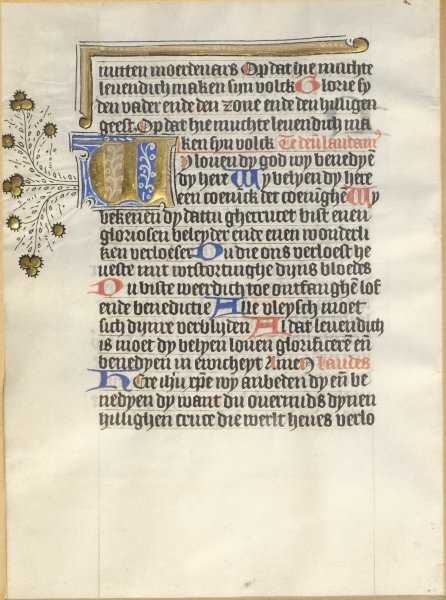 mitten moerdenars Op dat hie muchte
leuendich maken syn volck Glorie sy
den vader ende den zone ende den hilligen
geest Op dat hie muchte leuendich ma
ken syn volck Te deũ laudamꝰ
Wy louen dy god wy benedye
dy here Wy belyen dy here
een coenick der coenĩghe Wy
bekenen dy dattu gherucet biste enen
gloriosen beleyder ende enen wonderli
ken verloeser Du die ons verloest he
ueste mit wtstortinghe dijns bloedes
Du biste weerdich toe ontfanghẽ lof
ende benedictie Alle vleysch moet
sich dynre verblijden Al dat leuendich
is moet dy belyen louen glorificerẽ eñ
benedyen in ewicheyt Amen Laudes
Here ihũ xp̃e wy anbeden dy eñ be
nedyen dy want du ouermids dynen
hillighen cruce die werlt heues verlo